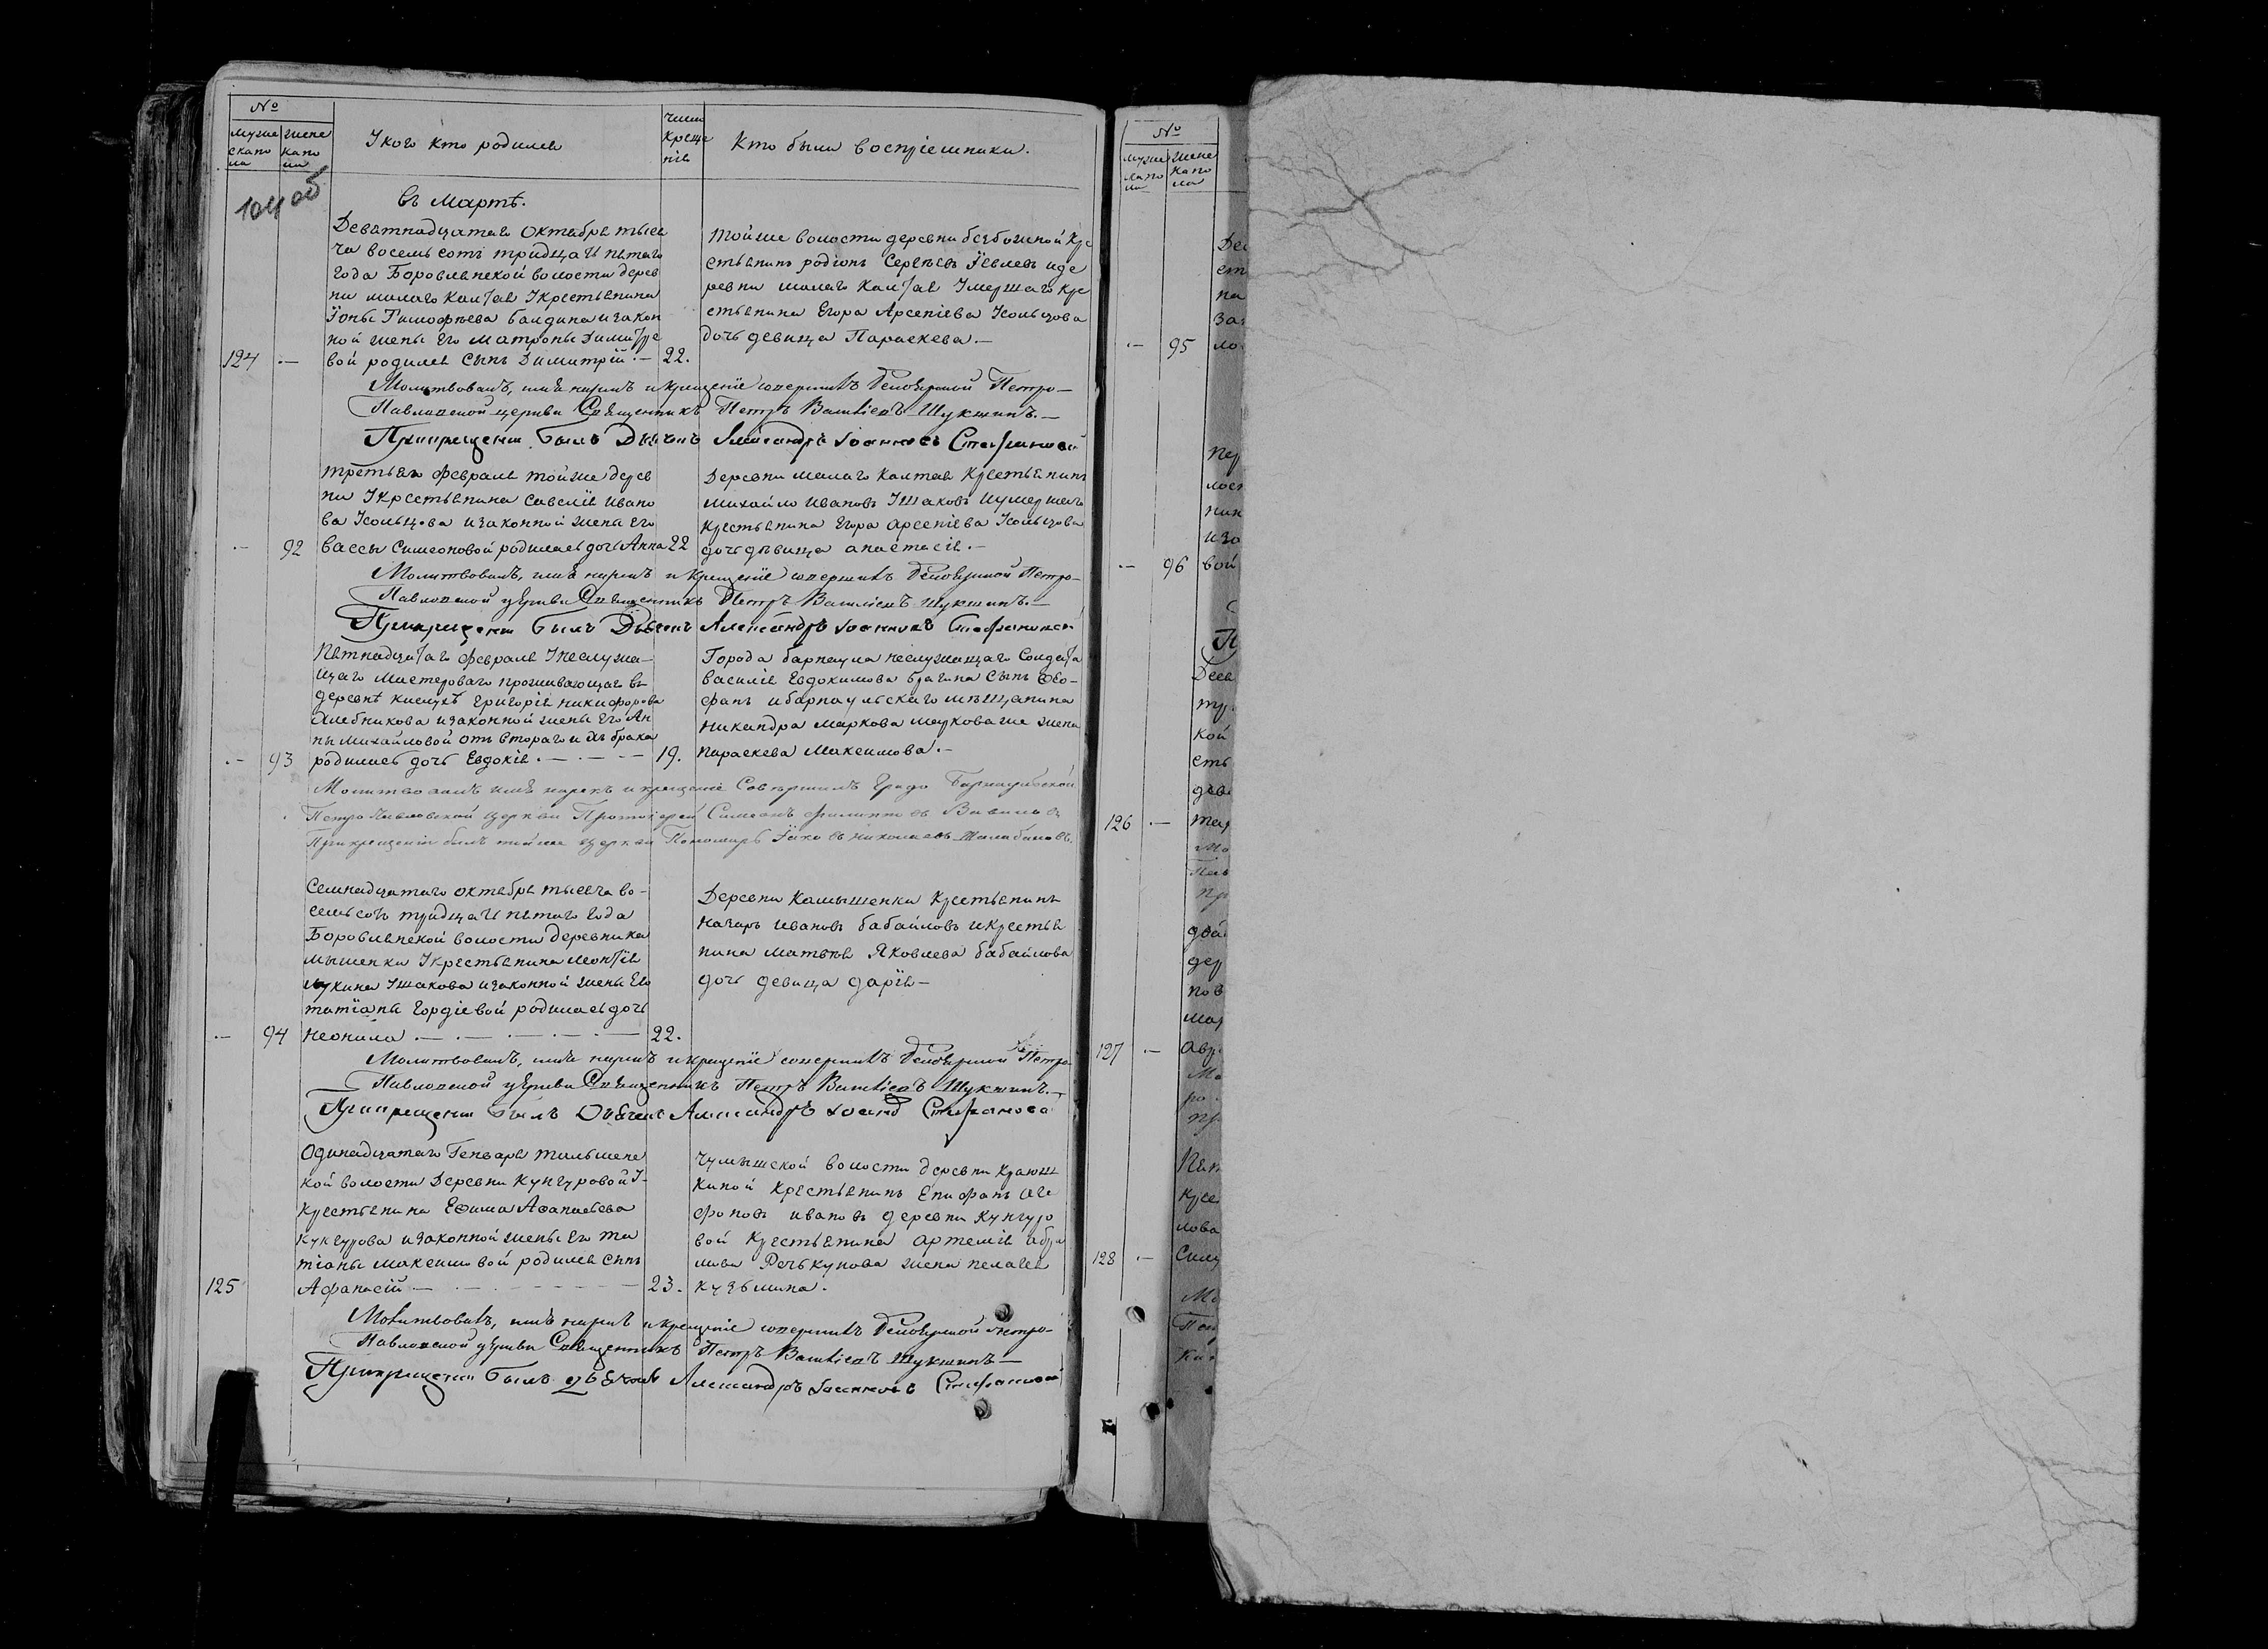 №
мужескаго пола
женскаго пола
У кого кто родился
число крещенія
Кто были воспріемники.
104 об
въ Мартѣ.
Девятнадцатаго Октября тыся
ча восемьсотъ тридцать пятаго
года Боровлянской волости дерев
ни малаго Калтая Укрестьянина
Іоны Тимофѣева Балдина изакон
ной жены Его Матроны Димитріе
124 — вой родился сынъ Димитрій. — 22.
тойже волости деревни безбожной Кре
стьянинъ родіонъ Сергѣевъ Іевлевъ иде
ревни малаго Калтая Умершаго кре
стьянина Егора Арсеніева Кольцова
дочь девица Параскева. —
Молитвовалъ, имя нарекъ и крещеніе совершилъ Белоярской Петро-
Павловской церкви Священникъ Петръ Васильевъ Шукшинъ. —
При крещеніи былъ Дьячекъ Александръ Іоанновъ
третьяго февраля тойже дерев
ни Укрестьянина Савелія Ивано
ва Кольцова изаконной жены Его
— 92 Вассы Симеоновой родилась дочь Анна 22
Деревни малаго Калтая Крестьянинъ
Михайло Ивановъ Ушаковъ Иумершаго
крестьянина Егора арсеніева Кольцова
дочь дѣвица анастасія. —
Молитвовалъ, имя нарекъ и крещеніе совершилъ Белоярской Петро-
Павловской церкви Священникъ Петръ Васильевъ Шукшинъ. —
При крещеніи былъ Дьячекъ Александръ Іоанновъ
Пятнадцатаго февраля Унеслужа-
щаго Мастероваго проживающаго въ
деревнѣ кислухѣ Григорія никифорова
Хлебникова изаконной жены Его Ан
ны Михайловой отъ втораго ихъ брака
— 93 родилась дочь Евдокія. — — — 19.
Города барнаула неслужащаго Солдата
василія Евдокимова брагина сынъ Ѳео-
фанъ ибарнаульскаго мѣщанина
Никандра Маркова Марковаже жена
параскева Максимова. —
Молитвовалъ имя нарекъ и крещеніе Совершилъ Градо Барнаульской
Петро Павловской церкви Протоіерей Симеонъ филипповъ Вавиловъ
При крещеніи былъ тойже церкви Пономарь Іаковъ Николаевъ Шалабановъ.
Семнадцатаго октября тысяча во-
семьсотъ тридцать пятаго года
Боровлянской волости Деревни ка
мышенки Укрестьянина Леонтія
лукина Ушакова изаконной жены Его
татіаны Гордіевой родилась дочь
— 94 Неонила — — — — 22.
Деревни Камышенки Крестьянинъ
Назаръ Ивановъ бабайловъ икрестья
нина Матвѣя Яковлева бабайлова
дочь девица дарія —
Молитвовалъ, имя нарекъ и крещеніе совершилъ Белоярской Петро-
Павловской церкви Священникъ Петръ Васильевъ Шукшинъ. —
При крещеніи былъ Дьячекъ Александръ
Одинадцатаго Генваря тальменс
кой волости Деревни Кунгуровой У-
крестьянина Ефима Афанасьева
Кунгурова изаконной жены Его та
тіаны максимовой родился сынъ
125 Афанасій — — — 23.
Чумышской волости деревни Краюш
киной Крестьянинъ Епифанъ
ивановъ деревни Кунгуро
вой Крестьянина Артемія абра
мова Речкунова жена пелагея
кузьмина.
Молитвовалъ, имя нарекъ и крещеніе совершилъ Белоярской Петро-
Павловской церкви Священникъ Петръ Васильевъ Шукшинъ —
При крещеніи былъ Дьячекъ Александръ Іоанновъ
№
— 95
— 96
126 —
127 —
128 —